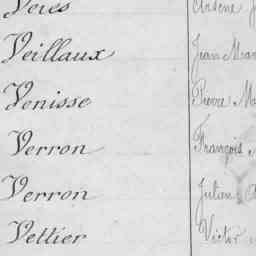 Veillaux Jean Mar
Venisse Pierre Ma
Verron François
Verron Julien
Vettier Victor